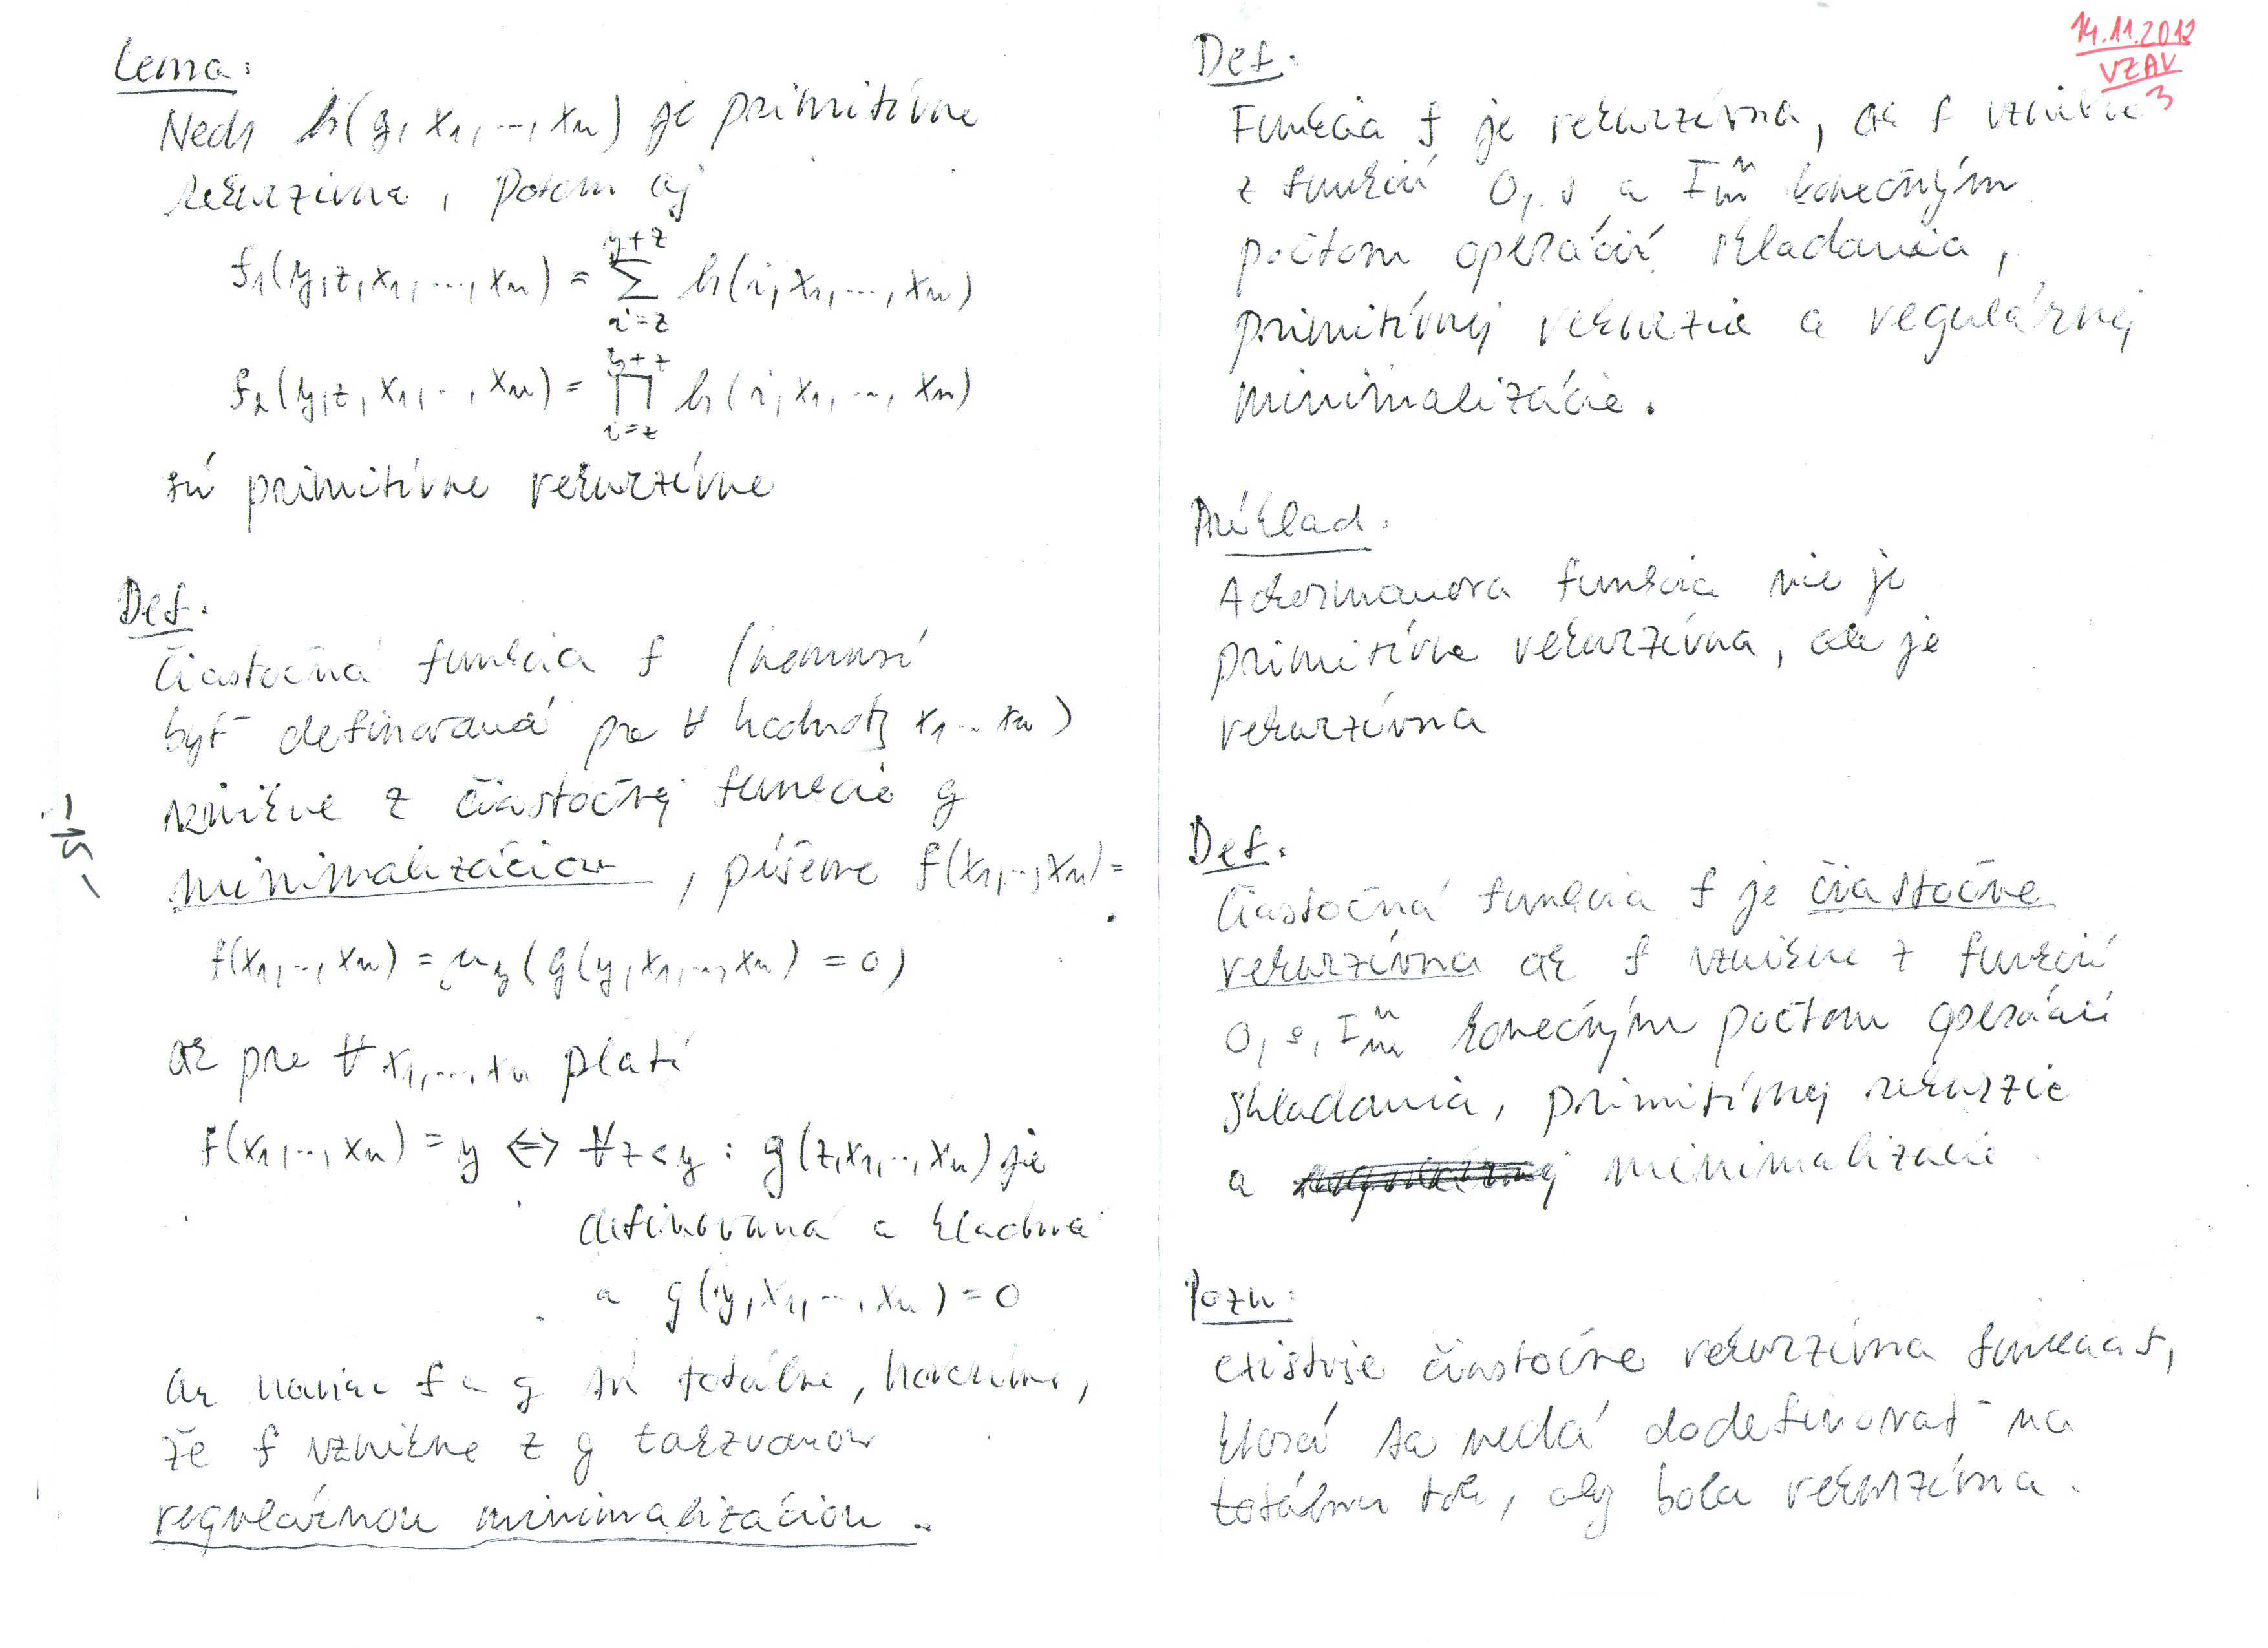 Lema:
Nech h(y, x1, ..., xn) je primitívne
rekurzívna, potom aj
f1(y,z,x1, ..., xn) = y+z∑i=z h(i, x1, ..., xn)
f2(y,z,x1, .., xn) = y+z∏i=z h(i, x1, ..., xn)
sú primitívne rekurzívne
Def.
Čiastočná funkcia f (nemusí
byť definovaná pre ∀ hodnoty x1 .. xn)
vznikne z čiastočnej funkcie g
minimalizáciou, píšeme f(x1, .., xn) =
f(x1, .., xn) = μy(g(y, x1, .., xn) = 0)
ak pre ∀x1, ..., xn platí
f(x1, .., xn) = y ⟺ ∀z<y : g(z,x1, .., xn) je
definovaná a kladná
a g(y, x1, ..., xn) = 0
Ak naviac f a g sú totálne, hovoríme,
že f vznikne z g takzvanou
regulárnou minimalizáciou.
-15-
14.11.2012
VZAV
3
Def.
Funkcia f je rekurzívna, ak f vznikne
z funkcií 0, s a Iⁿm konečným
počtom operácií skladania,
primitívnej rekurzie a regulárnej
minimalizácie.
Príklad.
Ackermanova funkcia nie je
primitívne rekurzívna, ale je
rekurzívna
Def.
Čiastočná funkcia f je čiastočne
rekurzívna ak f vznikne z funkcií
0, s, Iⁿm konečným počtom operácií
skladania, primitívnej rekurzie
a minimalizácie.
Pozn:
existuje čiastočne rekurzívna funkcia f,
ktorá sa nedá dodefinovať na
totálnu tak, aby bola rekurzívna.